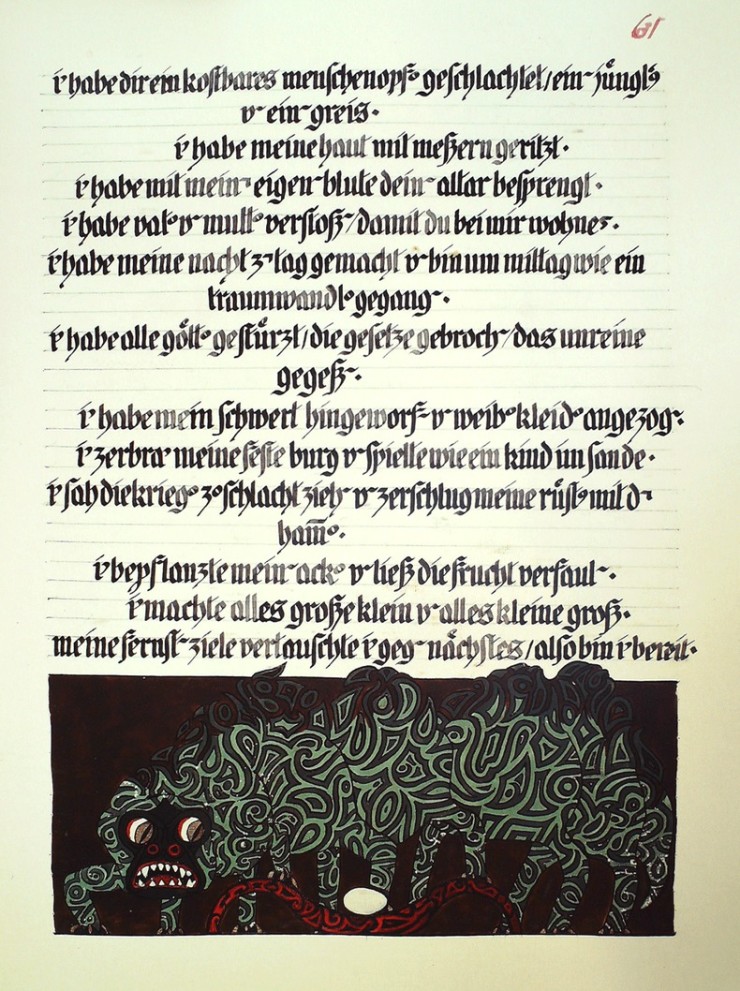 61
i' habe dir ein kostbares menschenopf' geschlachtet/ein' jüngl'g
v' ein' greis.
i' habe meine haut mit meßern geritzt.
i' habe mit mein' eigen' blute dein' altar besprengt.
i' habe vat' v' mutt' verstoß'/damit du bei mir wohnes'.
i' habe meine nacht z' tag gemacht v' bin um mittag wie ein
traumwandl' gegang'.
i' habe alle gött' gestürzt/die gesetze gebroch'/das unreine
gegeß'.
i' habe mein schwert hingeworf' v' weib' kleid' angezog'.
i' zerbra' meine feste burg v' spielte wie ein kind im sande.
i' sah die krieg' z' schlacht zieh' v' zerschlug meine rüst' mit d'
ham̄'.
i' bepflanzte mein' ack' v' ließ die frucht verfaul'.
i' machte alles große klein v' alles kleine groß.
meine fernst' ziele vertauschte i' geg' nächstes/also bin i' bereit.